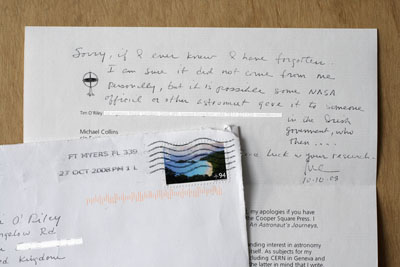 Sorry, if I ever knew I have forgotten.
I am sure it did not come from me
personally, but it is possible some NASA
official or other astronaut gave it to someone
in the Irish
Government, who
then ....
Good luck w your research.
10-10-08
Tim O'Riley
Michael Collins
FT MYERS FL 339
27 OCT 2008 PM 1 L
94
O'Riley
Rd
Kingdom
, my apologies if you have
Cooper Square Press. I
An Astronaut's Journeys,
nding interest in astronomy
tself. As subjects for my
luding CERN in Geneva and
the latter in mind that I write